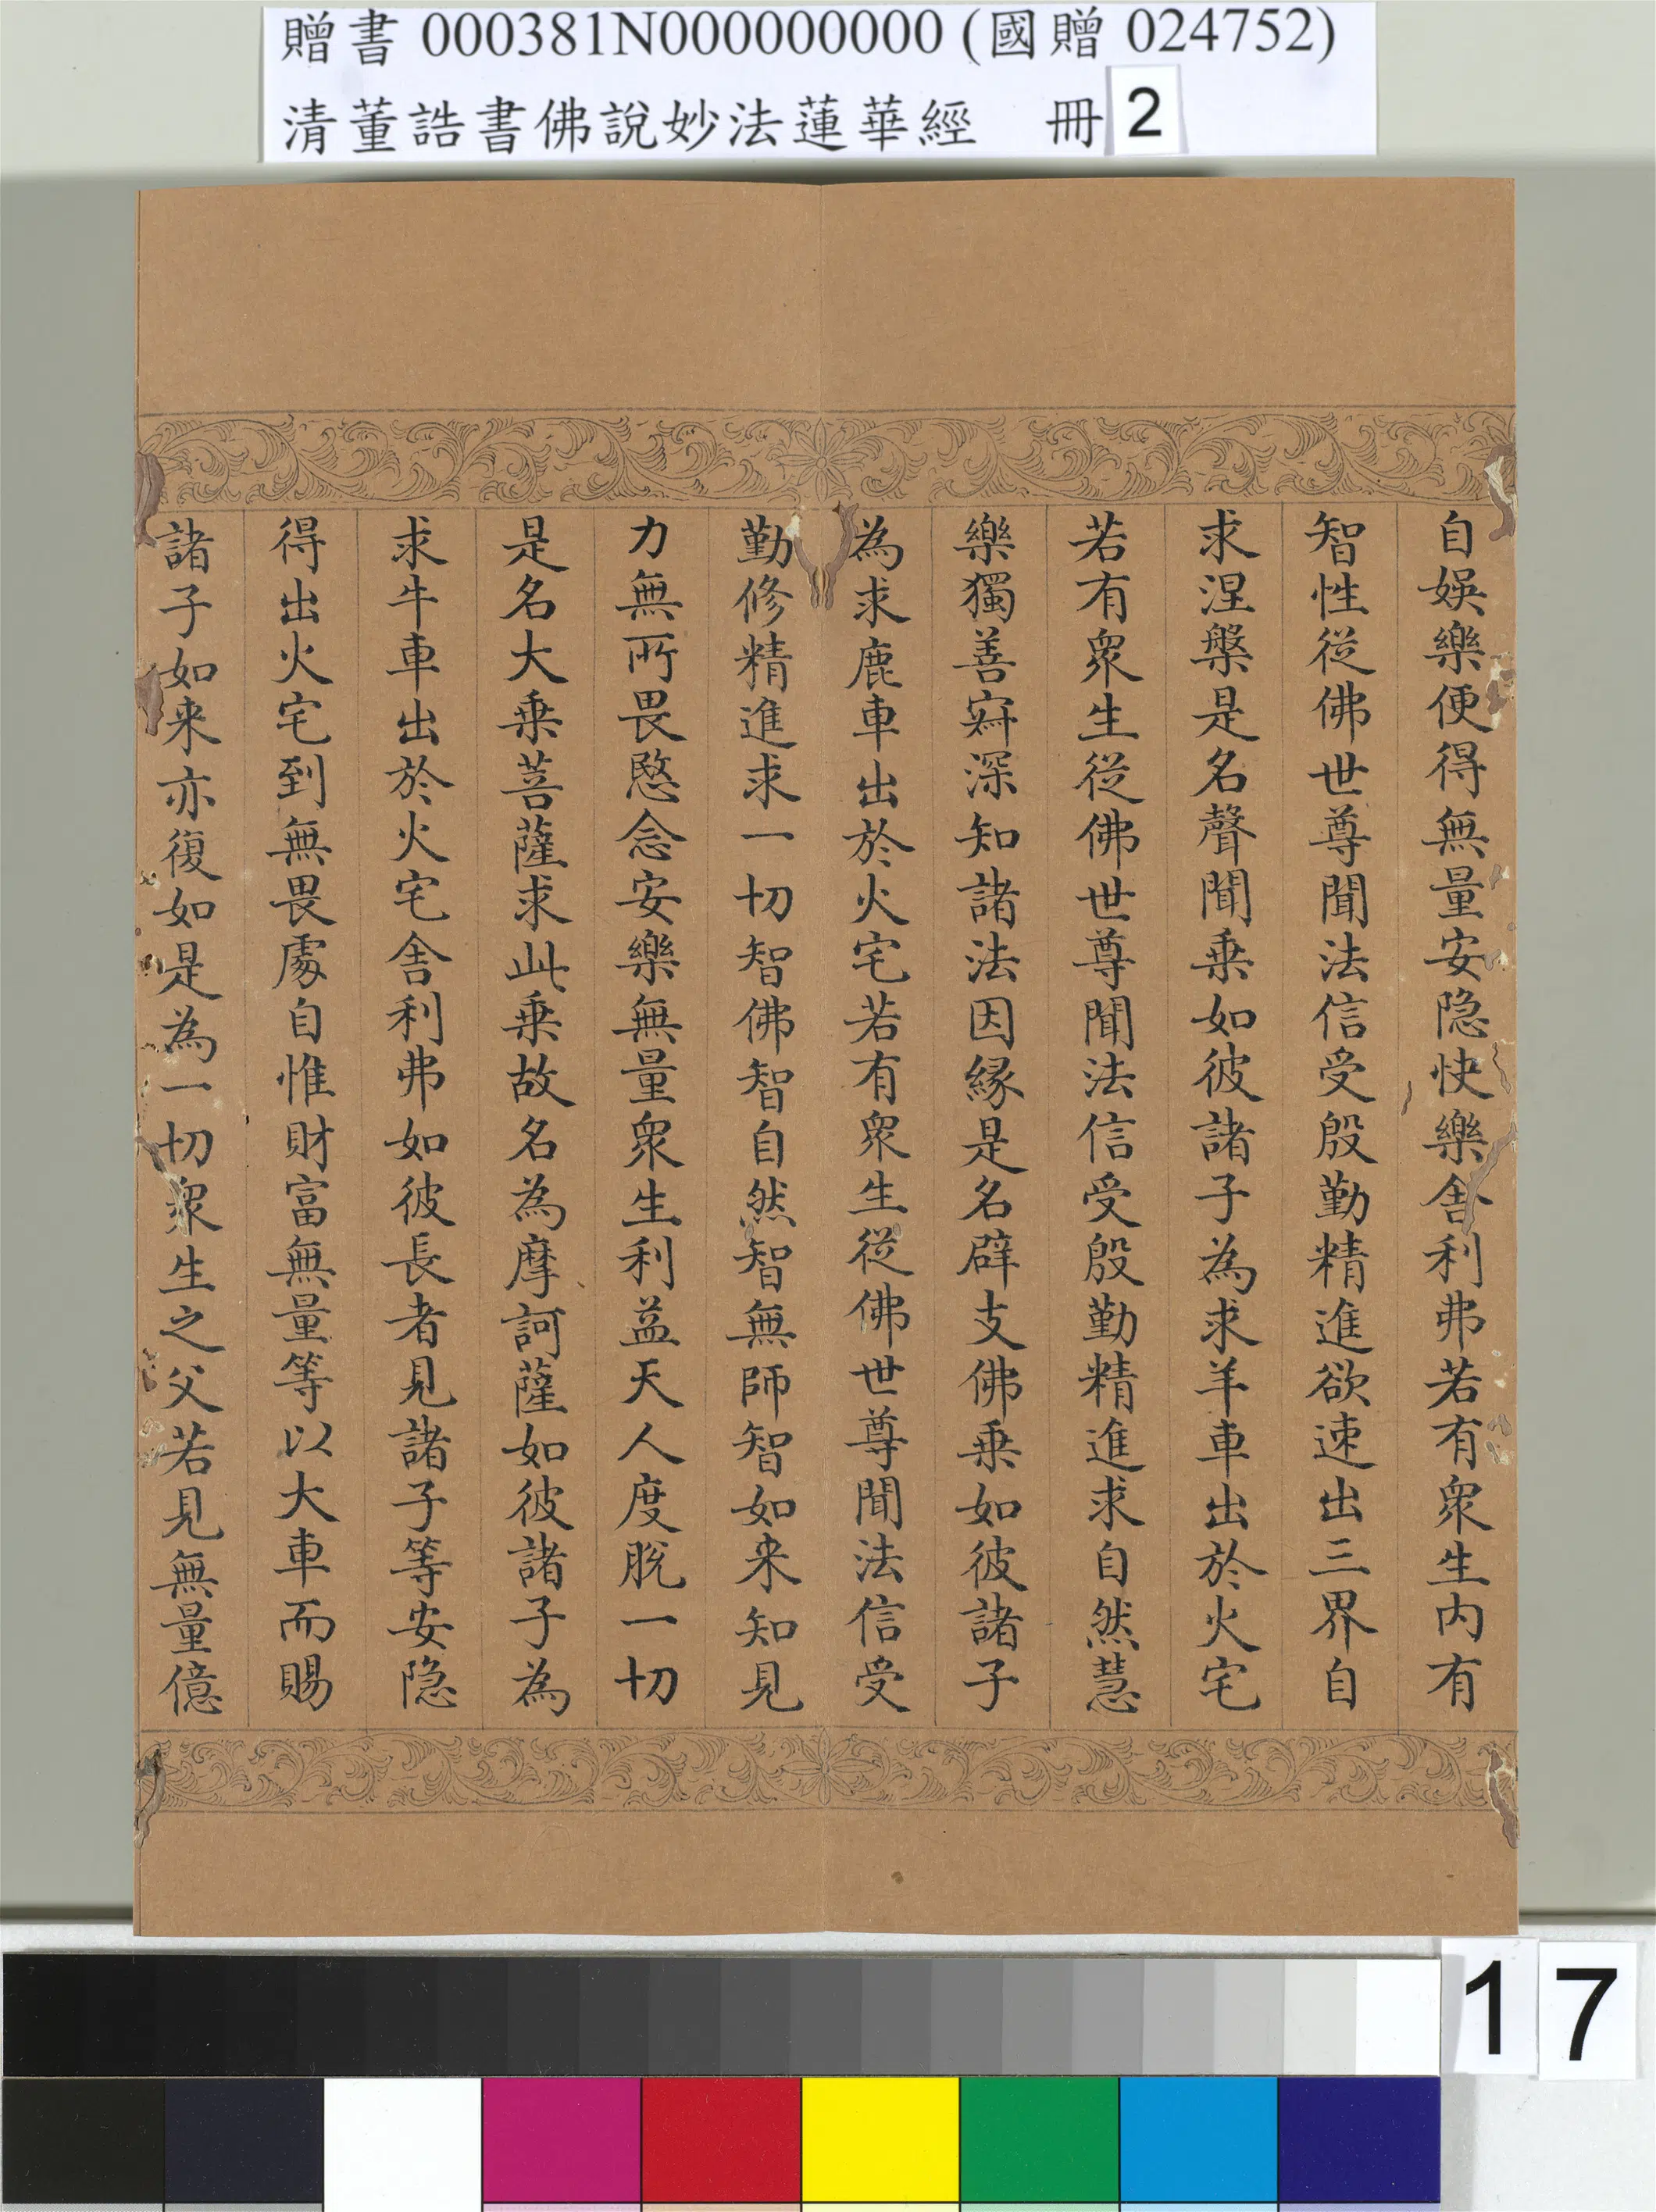 贈書 000381N000000000 (國贈 024752)
清董誥書佛說妙法蓮華經 冊 2
自娛樂便得無量安隐快樂舍利弗若有眾生内有
智性從佛世尊聞法信受殷勤精進欲速出三界自
求涅槃是名聲聞乗如彼諸子為求羊車出於火宅
若有眾生從佛世尊聞法信受殷勤精進求自然慧
樂獨善寂深知諸法因緣是名辟支佛乗如彼諸子
為求鹿車出於火宅若有眾生從佛世尊聞法信受
勤修精進求一切智佛智自然智無師智如来知見
力無所畏愍念安樂無量眾生利益天人度脫一切
是名大乗菩薩求此乗故名為摩訶薩如彼諸子為
求牛車出於火宅舍利弗如彼長者見諸子等安隐
得出火宅到無畏處自惟財富無量等以大車而賜
諸子如来亦復如是為一切眾生之父若見無量億
17